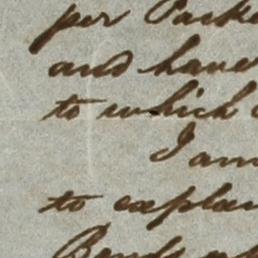 per Parke
and have
to which
I am
to explain
Bonds